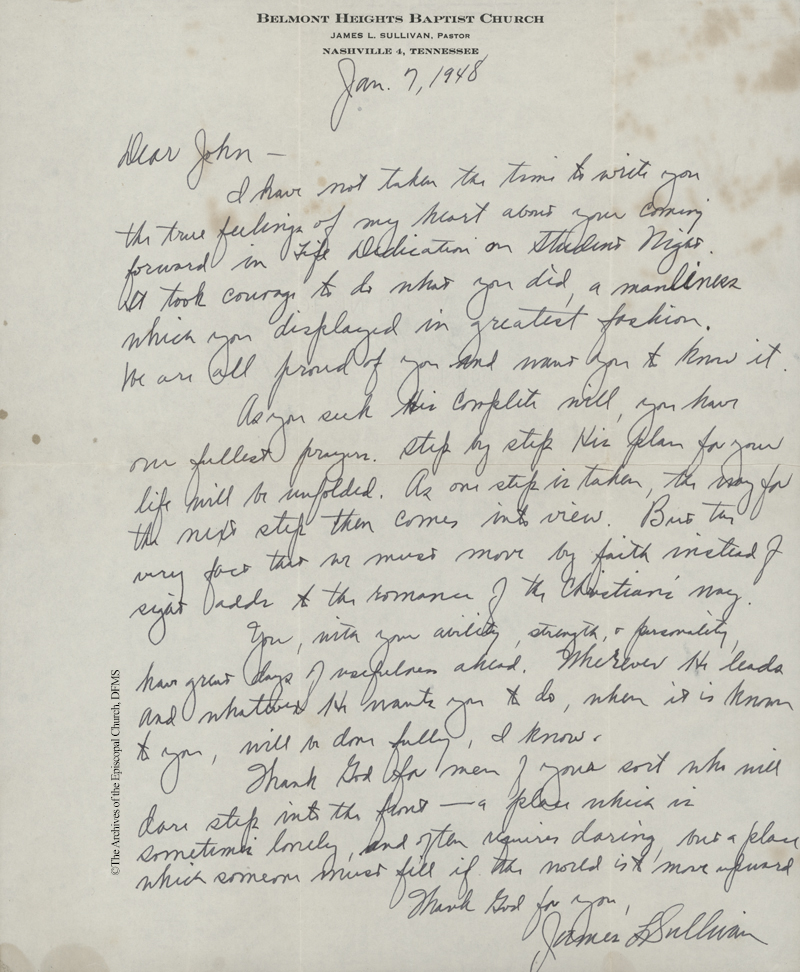 BELMONT HEIGHTS BAPTIST CHURCH
JAMES L. SULLIVAN, PASTOR
NASHVILLE 4, TENNESSEE
Jan. 7, 1948
Dear John —
I have not taken the time to write you
the true feelings of my heart about your coming
forward in Life Dedication on Student Night.
It took courage to do what you did, a manliness
which you displayed in greatest fashion.
We are all proud of you and want you to know it.
As you seek His complete will, you have
our fullest prayers. Step by step His plan for your
life will be unfolded. As one step is taken, the way for
the next step then comes into view. But the
very fact that we must move by faith instead of
sight adds to the romance of the Christian's way.
You, with your ability, strength, & personality,
have great days of usefulness ahead. Wherever He leads
and whatever He wants you to do, when it is known
to you, will be done fully, I know.
Thank God for men of your sort who will
dare step into the front — a place which is
sometimes lonely, and often requires daring, but a place
which someone must fill if the world is to move upward
Thank God for you,
James L Sullivan
©The Archives of the Episcopal Church, DFMS